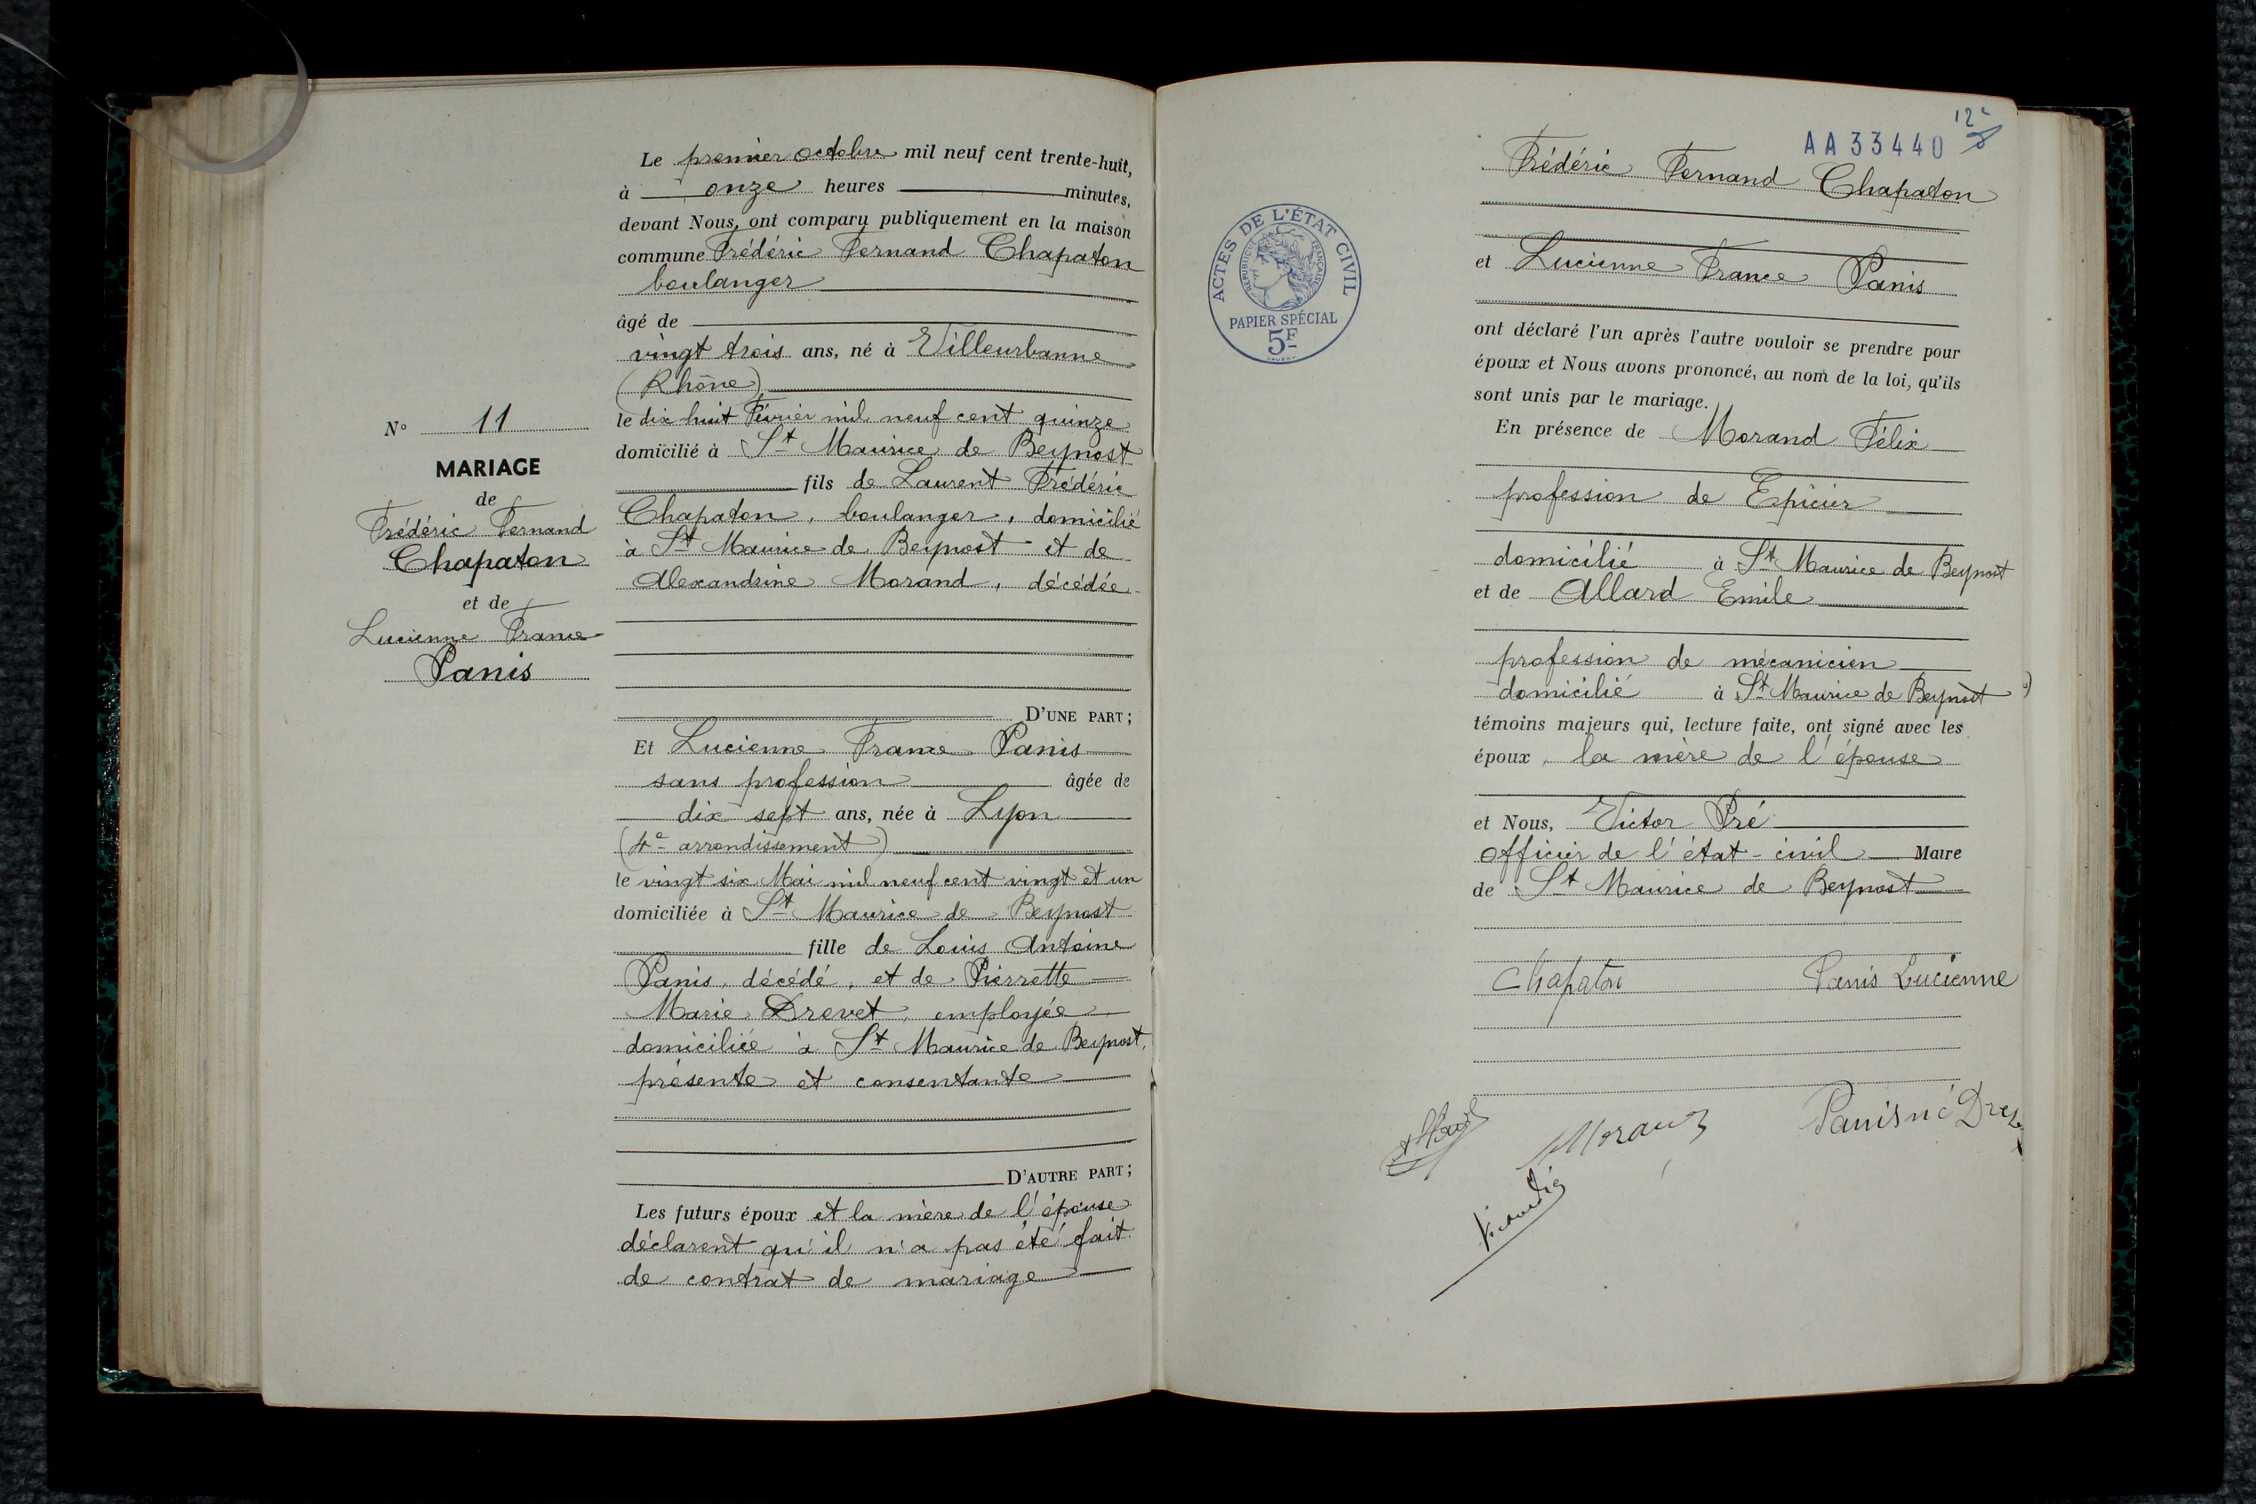 N° 11
MARIAGE
de
Frédéric Fernand
Chapaton
et de
Lucienne France
Panis
Le premier octobre mil neuf cent trente-huit,
à onze heures minutes,
devant Nous, ont comparu publiquement en la maison
commune Frédéric Fernand Chapaton
boulanger
âgé de
vingt trois ans, né à Villeurbanne
(Rhône)
le dix huit Février mil neuf cent quinze
domicilié à St Maurice de Beynost
fils de Laurent Frédéric
Chapaton, boulanger, domicilié
à St Maurice de Beynost et de
Alexandrine Morand, décédée
D'UNE PART;
Et Lucienne France Panis
sans profession âgée de
dix sept ans, née à Lyon
(4e arrondissement)
le vingt six Mai mil neuf cent vingt et un
domiciliée à St Maurice de Beynost
fille de Louis Antoine
Panis, décédé, et de Pierrette
Marie Drevet, employée
domiciliée à St Maurice de Beynost,
présente et consentante
D'AUTRE PART;
Les futurs époux et la mère de l'épouse
déclarent qu'il n'a pas été fait
de contrat de mariage
AA33440
Frédéric Fernand Chapaton
et Lucienne France Panis
ont déclaré l'un après l'autre vouloir se prendre pour
époux et Nous avons prononcé, au nom de la loi, qu'ils
sont unis par le mariage.
En présence de Morand Félix
profession de Epicier
domicilié à St Maurice de Beynost
et de Allard Emile
profession de mécanicien
domicilié à St Maurice de Beynost
témoins majeurs qui, lecture faite, ont signé avec les
époux, la mère de l'épouse
et Nous, Victor Pré
Officier de l'état-civil Maire
de St Maurice de Beynost
Chapaton Panis Lucienne
Morand Panis né Drevet
ACTES DE L'ÉTAT CIVIL
RÉPUBLIQUE FRANÇAISE
PAPIER SPÉCIAL
5F